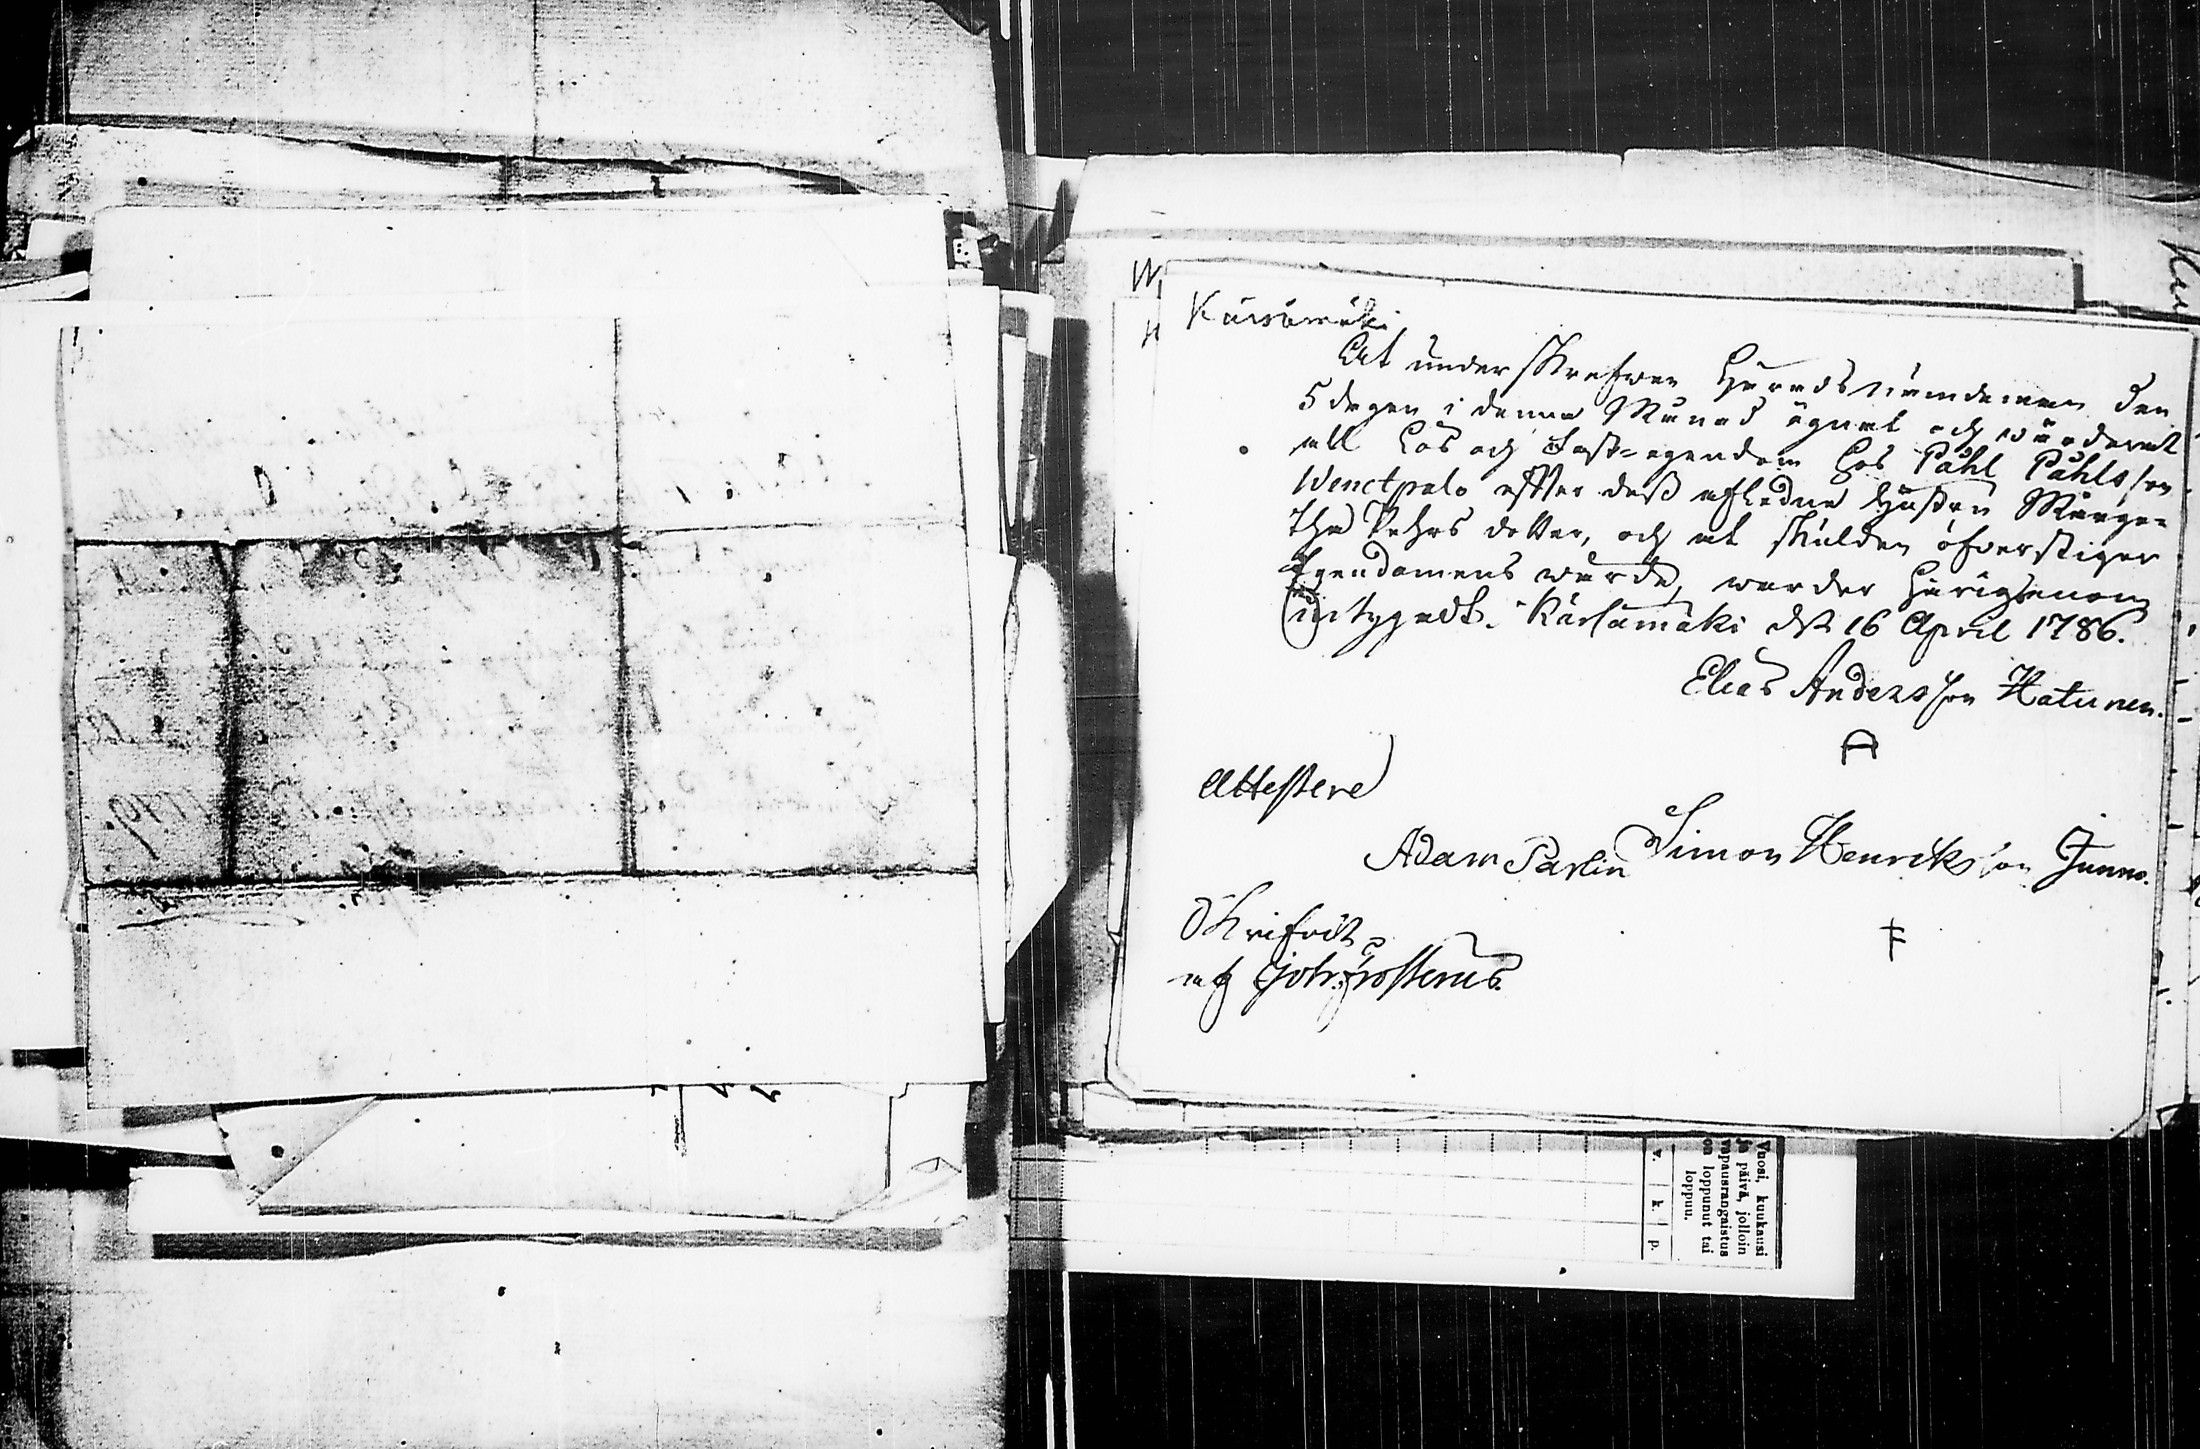 Kärsämäki
At underskrefwen Häradsnämdeman den
5 dagen i denna Månad ägnat och värderat
all Lös och Fast-egendom hos Påhl Påhlsson
Wenetpalo efter dess afledna Hustru Marge-
tha Pehrs dotter, och at skulden öfverstiger
Egendomens wärde, warder härigenom
intygadt. Kärsämäki d. 16 April 1786.
Elias Andersson Hatunen.
Attestera
Adam Pavlin Simon Henriksson Junno.
Skrifvit
af Joh: Frosterus.
Vuosi, kuukausi
ja päivä, jolloin
vapausrangaistus
on loppunut tai
loppuu.
v. k. p.